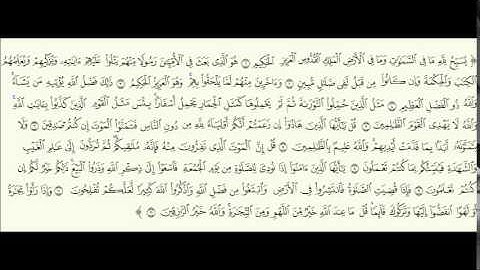 ﴿ يُسَبِّحُ لِلَّهِ مَا فِي ٱلسَّمَٰوَٰتِ وَمَا فِي ٱلْأَرْضِ ٱلْمَلِكِ ٱلْقُدُّوسِ ٱلْعَزِيزِ ٱلْحَكِيمِ ۝ هُوَ ٱلَّذِي بَعَثَ فِي ٱلْأُمِّيِّۦنَ رَسُولًا مِّنْهُمْ يَتْلُوا۟ عَلَيْهِمْ ءَايَٰتِهِۦ وَيُزَكِّيهِمْ وَيُعَلِّمُهُمُ
ٱلْكِتَٰبَ وَٱلْحِكْمَةَ وَإِن كَانُوا۟ مِن قَبْلُ لَفِي ضَلَٰلٍ مُّبِينٍ ۝ وَءَاخَرِينَ مِنْهُمْ لَمَّا يَلْحَقُوا۟ بِهِمْ وَهُوَ ٱلْعَزِيزُ ٱلْحَكِيمُ ۝ ذَٰلِكَ فَضْلُ ٱللَّهِ يُؤْتِيهِ مَن يَشَآءُ
وَٱللَّهُ ذُو ٱلْفَضْلِ ٱلْعَظِيمِ ۝ مَثَلُ ٱلَّذِينَ حُمِّلُوا۟ ٱلتَّوْرَىٰةَ ثُمَّ لَمْ يَحْمِلُوهَا كَمَثَلِ ٱلْحِمَارِ يَحْمِلُ أَسْفَارًۢا بِئْسَ مَثَلُ ٱلْقَوْمِ ٱلَّذِينَ كَذَّبُوا۟ بِـَٔايَٰتِ ٱللَّهِ
وَٱللَّهُ لَا يَهْدِي ٱلْقَوْمَ ٱلظَّٰلِمِينَ ۝ قُلْ يَٰٓأَيُّهَا ٱلَّذِينَ هَادُوٓا۟ إِن زَعَمْتُمْ أَنَّكُمْ أَوْلِيَآءُ لِلَّهِ مِن دُونِ ٱلنَّاسِ فَتَمَنَّوُا۟ ٱلْمَوْتَ إِن كُنتُمْ صَٰدِقِينَ ۝ وَلَا
يَتَمَنَّوْنَهُۥٓ أَبَدًۢا بِمَا قَدَّمَتْ أَيْدِيهِمْ وَٱللَّهُ عَلِيمٌۢ بِٱلظَّٰلِمِينَ ۝ قُلْ إِنَّ ٱلْمَوْتَ ٱلَّذِي تَفِرُّونَ مِنْهُ فَإِنَّهُۥ مُلَٰقِيكُمْ ثُمَّ تُرَدُّونَ إِلَىٰ عَٰلِمِ ٱلْغَيْبِ
وَٱلشَّهَٰدَةِ فَيُنَبِّئُكُم بِمَا كُنتُمْ تَعْمَلُونَ ۝ يَٰٓأَيُّهَا ٱلَّذِينَ ءَامَنُوٓا۟ إِذَا نُودِيَ لِلصَّلَوٰةِ مِن يَوْمِ ٱلْجُمُعَةِ فَٱسْعَوْا۟ إِلَىٰ ذِكْرِ ٱللَّهِ وَذَرُوا۟ ٱلْبَيْعَ ذَٰلِكُمْ خَيْرٌ لَّكُمْ إِن
كُنتُمْ تَعْلَمُونَ ۝ فَإِذَا قُضِيَتِ ٱلصَّلَوٰةُ فَٱنتَشِرُوا۟ فِي ٱلْأَرْضِ وَٱبْتَغُوا۟ مِن فَضْلِ ٱللَّهِ وَٱذْكُرُوا۟ ٱللَّهَ كَثِيرًا لَّعَلَّكُمْ تُفْلِحُونَ ۝ وَإِذَا رَأَوْا۟ تِجَٰرَةً
أَوْ لَهْوًا ٱنفَضُّوٓا۟ إِلَيْهَا وَتَرَكُوكَ قَآئِمًا قُلْ مَا عِندَ ٱللَّهِ خَيْرٌ مِّنَ ٱللَّهْوِ وَمِنَ ٱلتِّجَٰرَةِ وَٱللَّهُ خَيْرُ ٱلرَّٰزِقِينَ ۝ ﴾